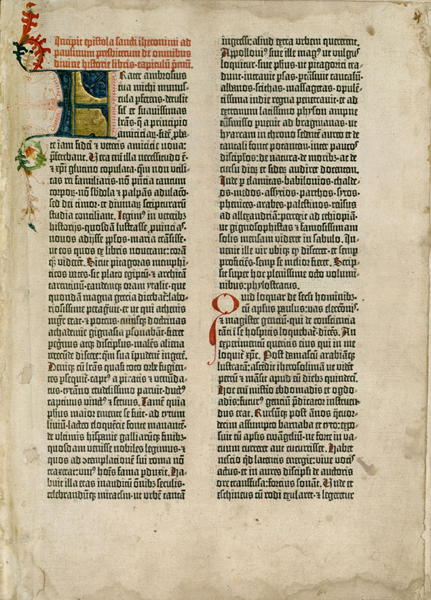 Incipit epistola sancti iheronimi ad
paulinum presbiterum de omnibus
divine historie libris·capitulu͂ p̄mu͂.
Frater ambrosius
tua michi munus-
cula p̱ferens·detulit
sil' et suavissimas
lr̄as·q̄ a principio
amiciciar̨·fidē ꝓba-
te iam fidei et veteris amicicie nova:
p̱ferebant. Vera eni͂ illa necessitudo ē·
et xp̄i glutino copulata·qm̄ non utili-
tas rei familiaris·nō pn̄tia tantum
corpor̨·nō s̄bdola et palpās adulac̄o·
sed dei timor·et divinar̨ scripturarū
studia conciliant. Legim̨ in veterib̨
historijs·quosdā lustrasse ꝓvincias·
novos adijsse ppl̄os·maria trāsisse·
ut eos quos ex libris noverant: corā
q̨ viderēt. Sicut pitagoras memphi-
ticos vates·sic plato egiptū·et archita
tarentinū·eandemq̨ oram ytalie·que
quondā magna grecia dicebat̄: labo-
riosissime peragravit·et ut qui athenis
mgr̄ erat·et potens·cuiusq̨ doctrinas
achademie gignasia p̱sonabāt: fieret
peg̈rinus atq̨ discipulus·malēs aliena
verecunde discere: q̄m sua īpudent̄ īgerere.
Deniq̨ cū lr̄as quasi toto orbe fugien-
tes p̱sequit̄·capt̨ a piratis et venūda-
tus·tirāno crudelissimo paruit·duct̨
captivus vinct̨ et servus. Tamē quia
phūs maior emente se fuit·ad tytum
liviū·lacteo eloquētie fonte manantē·
de ultimis hispanie galliarūq̨ finib̨·
quosdam venisse nobiles legimus·
quos ad ꝯtemplationē sui roma nō
traxerat: unį hoīs fama p̱duxit. Ha-
buit illa etas inauditū om̄ib̨ seculis·
celebrandūq̨ miraclm̄·ut urbē tantā
ingressi: aliud extra urbem quererent.
Apollonį sive ille mag̨ ut vulgus
loquitur·sive phūs·ut pitagorici tra-
dunt·intravit p̱sas·p̱transivit caucasū·
albanos·scithas·massagetas·opulē-
tissima indie regna penetravit·et ad
extremum latissimo physon amne
t̄nsmisso puenit ad bragmanas·ut
hyarcam in throno sedētē aureo et de
tantali fonte potantem·inter paucos
discipl̄os·de natura·de moribus·ac de
cursu dier̨ et siderū audiret docentem.
Inde p̱ elamitas·babilonios·chalde-
os·medos·assirios·parthos·syros·
phenices·arabes·palestinos·reversus
ad allexandriā: perrexit ad ethiopiā·
ut gignosophistas et famosissimam
solis mensam videret in sabulo. In-
venit ille vir ubiq̨ q̄ disceret·et semp̱
proficiēs·semp̱ se melior fieret. Scrip-
sit super hoc plenissime octo volumi-
nibus: phylostratus.
Quid loquar de seculi hominib̨·
cū apl̄us paulus·vas electōis·
et magister genciū·qui de conscientia
tāti ī se hospitis loquebat̄·dicēs. An
experimentum queritis eius qui in me
loquit̄ xp̄c. Post damascū arabiāq̨
lustratā: ascēdit iherosolimā ut videret
petrū et māsit apud eū dieb̨ quindeci.
Hoc eni͂ misterio ebdomadis et ogdo-
adis: futur̨ genciū p̄dicator instruen-
dus erat. Rursūq̨ post ānos quatuor-
decim assumpto barnaba et tyto: expo-
suit cū apl̄is ewangeliū·ne forte in va-
cuum curreret aut cucurrisset. Habet
nescio qd̄ latentis energie·vive vocis
actus·et in aures discipl̄i de auctoris
ore transfusa: forcius sonat. Unde et
eschineus cū rodi exularet·et legeretur